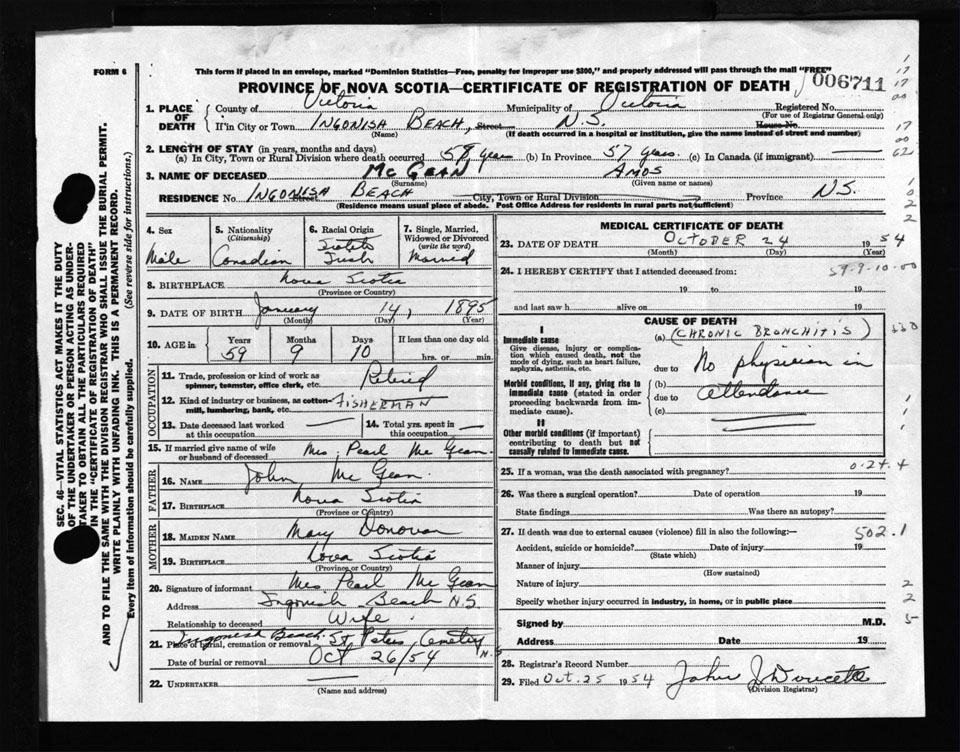 FORM 6
This form if placed in an envelope, marked "Dominion Statistics—Free, penalty for improper use $300," and properly addressed will pass through the mail "FREE"
PROVINCE OF NOVA SCOTIA—CERTIFICATE OF REGISTRATION OF DEATH
006711
1. PLACE OF DEATH
County of Victoria Municipality of Victoria Registered No.
(For use of Registrar General only)
If in City or Town INGONISH BEACH, Street N.S. House No.
(Name) (If death occurred in a hospital or institution, give the name instead of street and number)
2. LENGTH OF STAY (in years, months and days)
(a) In City, Town or Rural Division where death occurred 57 years (b) In Province 57 years. (c) In Canada (if immigrant)
3. NAME OF DECEASED Mc Gean AMOS
(Surname) (Given name or names)
RESIDENCE No. INGONISH BEACH Street City, Town or Rural Division Province N.S.
(Residence means usual place of abode. Post Office Address for residents in rural parts not sufficient)
4. Sex
Male
5. Nationality
(Citizenship)
Canadian
6. Racial Origin
Irish
7. Single, Married, Widowed or Divorced
(write the word)
Married
8. BIRTHPLACE Nova Scotia
(Province or Country)
9. DATE OF BIRTH January 14, 1895
(Month) (Day) (Year)
10. AGE in Years Months Days If less than one day old
59 9 10 hrs. or min.
OCCUPATION
11. Trade, profession or kind of work as spinner, teamster, office clerk, etc. Retired
12. Kind of industry or business, as cotton-mill, lumbering, bank, etc. FISHERMAN
13. Date deceased last worked at this occupation
14. Total yrs. spent in this occupation
15. If married give name of wife or husband of deceased Mrs. Pearl Mc Gean
FATHER
16. NAME John Mc Gean
17. BIRTHPLACE Nova Scotia
(Province or Country)
MOTHER
18. MAIDEN NAME Mary Donovan
19. BIRTHPLACE Nova Scotia
(Province or Country)
20. Signature of informant Mrs Pearl Mc Gean
Address Ingonish Beach N.S
Relationship to deceased Wife
21. Place of burial, cremation or removal Ingonish Beach. St Peters Cemetery N.S
Date of burial or removal Oct 26/54
22. UNDERTAKER
(Name and address)
MEDICAL CERTIFICATE OF DEATH
23. DATE OF DEATH OCTOBER 24 1954
(Month) (Day) (Year)
24. I HEREBY CERTIFY that I attended deceased from:
59-9-10-00
19 to 19
and last saw h alive on 19
CAUSE OF DEATH
I
Immediate cause
Give disease, injury or complication which caused death, not the mode of dying, such as heart failure, asphyxia, asthenia, etc.
(a) (CHRONIC BRONCHITIS)
due to No physician in
Morbid conditions, if any, giving rise to immediate cause (stated in order proceeding backwards from immediate cause).
(b)
due to attendance
(c)
II
Other morbid conditions (if important) contributing to death but not causally related to immediate cause.
25. If a woman, was the death associated with pregnancy?
0-24.4
26. Was there a surgical operation? Date of operation 19
State findings Was there an autopsy?
27. If death was due to external causes (violence) fill in also the following:—
502.1
Accident, suicide or homicide? Date of injury 19
(State which)
Manner of injury
(How sustained)
Nature of injury
Specify whether injury occurred in industry, in home, or in public place
Signed by M.D.
Address Date 19
28. Registrar's Record Number
29. Filed Oct. 25 1954 John J Doucette
(Division Registrar)
SEC. 46—VITAL STATISTICS ACT MAKES IT THE DUTY
OF THE UNDERTAKER OR PERSON ACTING AS UNDER-
TAKER TO OBTAIN ALL THE PARTICULARS REQUIRED
IN THE "CERTIFICATE OF REGISTRATION OF DEATH"
AND TO FILE THE SAME WITH THE DIVISION REGISTRAR WHO SHALL ISSUE THE BURIAL PERMIT.
WRITE PLAINLY WITH UNFADING INK. THIS IS A PERMANENT RECORD.
Every item of information should be carefully supplied. (See reverse side for instructions.)
1
17
17
00
17
00
62
1
0
2
2
1
1
1
2
2
5